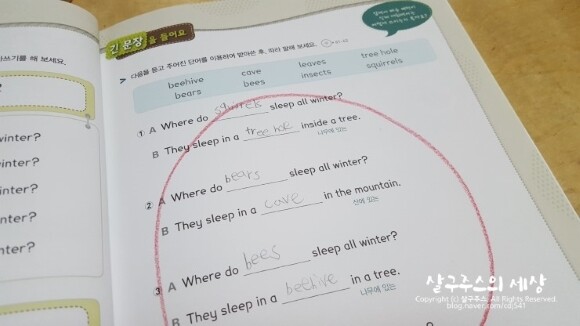 긴 문장을 들어요
쓰기를 해 보세요.
다음을 듣고 주어진 단어를 이용하여 받아쓴 후, 따라 말해 보세요.
beehive cave leaves tree hole
bears bees insects squirrels
① A Where do squirrels sleep all winter?
B They sleep in a tree hole inside a tree.
나무에 있는
② A Where do bears sleep all winter?
B They sleep in a cave in the mountain.
산에 있는
③ A Where do bees sleep all winter?
B They sleep in a beehive in a tree.
나무에 있는
?
winter?
winter?
winter?
winter?
살구주스의 세상
Copyright (c) 살구주스. All Rights Reserved.
blog.naver.com/sdj541